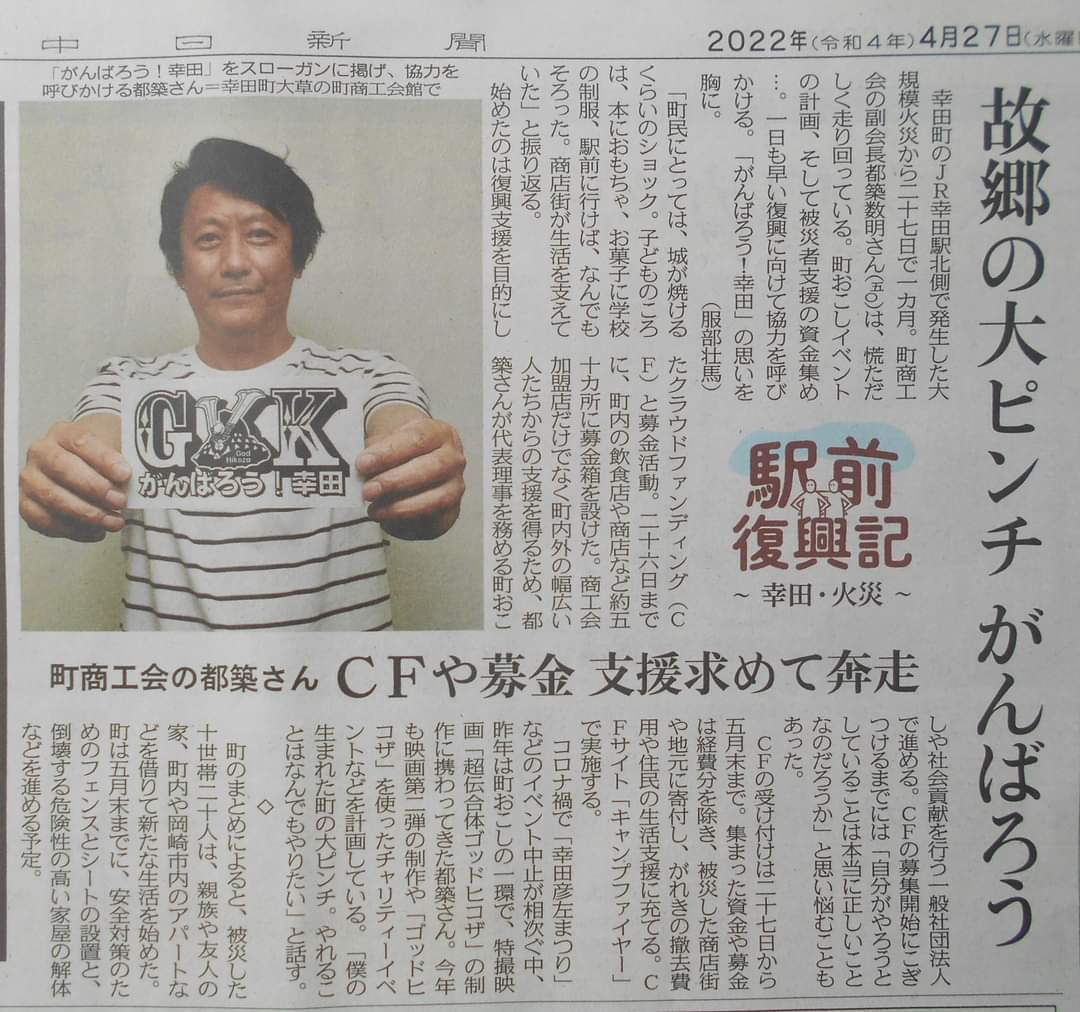 中日新聞
2022年(令和4年)4月27日(水曜日
故郷の大ピンチ がんばろう
町商工会の都築さん CFや募金 支援求めて奔走
駅前
復興記
～幸田・火災～
「がんばろう！幸田」をスローガンに掲げ、協力を
呼びかける都築さん＝幸田町大草の町商工会館で
GKK
God
Hikoza
がんばろう！幸田
幸田町のＪＲ幸田駅北側で発生した大
規模火災から二十七日で一カ月。町商工
会の副会長都築数明さん(五〇)は、慌ただ
しく走り回っている。町おこしイベント
の計画、そして被災者支援の資金集め
…。一日も早い復興に向けて協力を呼び
かける。「がんばろう！幸田」の思いを
胸に。
(服部壮馬)
「町民にとっては、城が焼ける
くらいのショック。子どものころ
は、本におもちゃ、お菓子に学校
の制服、駅前に行けば、なんでも
そろった。商店街が生活を支えて
いた」と振り返る。
始めたのは復興支援を目的にし
たクラウドファンディング（Ｃ
Ｆ）と募金活動。二十六日まで
に、町内の飲食店や商店など約五
十カ所に募金箱を設けた。商工会
加盟店だけでなく町内外の幅広い
人たちからの支援を得るため、都
築さんが代表理事を務める町おこ
しや社会貢献を行う一般社団法人
で進める。ＣＦの募集開始にこぎ
つけるまでには「自分がやろうと
していることは本当に正しいこと
なのだろうか」と思い悩むことも
あった。
ＣＦの受け付けは二十七日から
五月末まで。集まった資金や募金
は経費分を除き、被災した商店街
や地元に寄付し、がれきの撤去費
用や住民の生活支援に充てる。Ｃ
Ｆサイト「キャンプファイヤー」
で実施する。
コロナ禍で「幸田彦左まつり」
などのイベント中止が相次ぐ中、
昨年は町おこしの一環で、特撮映
画「超伝合体ゴッドヒコザ」の制
作に携わってきた都築さん。今年
も映画第二弾の制作や「ゴッドヒ
コザ」を使ったチャリティーイベ
ントなどを計画している。「僕の
生まれた町の大ピンチ。やれるこ
とはなんでもやりたい」と話す。
◇
町のまとめによると、被災した
十世帯二十人は、親族や友人の
家、町内や岡崎市内のアパートな
どを借りて新たな生活を始めた。
町は五月末までに、安全対策のた
めのフェンスとシートの設置と、
倒壊する危険性の高い家屋の解体
などを進める予定。